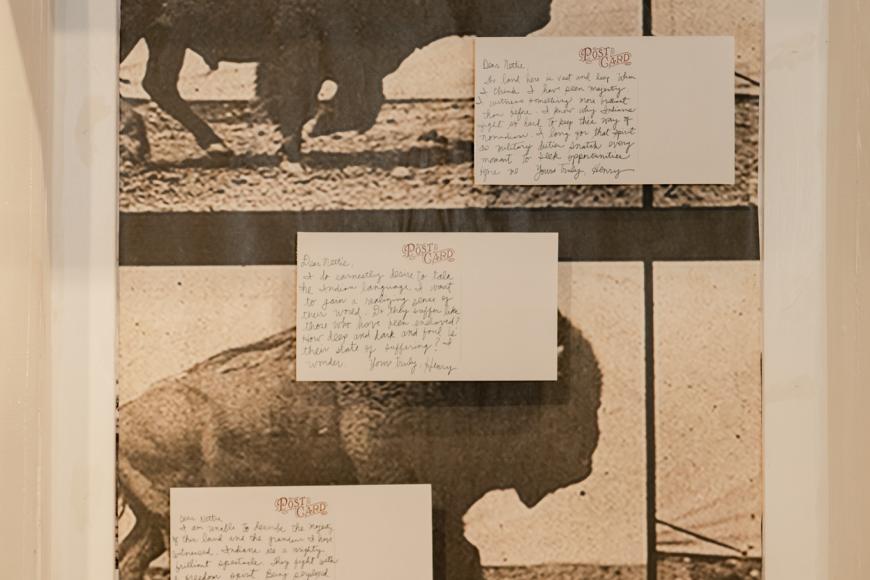 POST CARD
Dear Nettie,
The land here is vast and keep when
I think I have seen majesty
I witness something more brilliant
than before. I know why Indians
fight so hard to keep their way of
nomadism. I long for that spirit
as military duties snatch every
moment to seek opportunities
Yours Truly, Henry
POST CARD
Dear Nettie,
I do earnestly desire to talk
the Indian language. I want
to gain a realizing sense of
their world. Do they suffer like
those who have been enslaved?
How deep and dark and foul is
their state of suffering? I
wonder. Yours Truly, Henry
POST CARD
Dear Nettie,
I am unable to describe the majesty
of this land and the grandeur I have
witnessed. Indians are a mighty
brilliant spectacle. They fight with
freedom spirit. Being